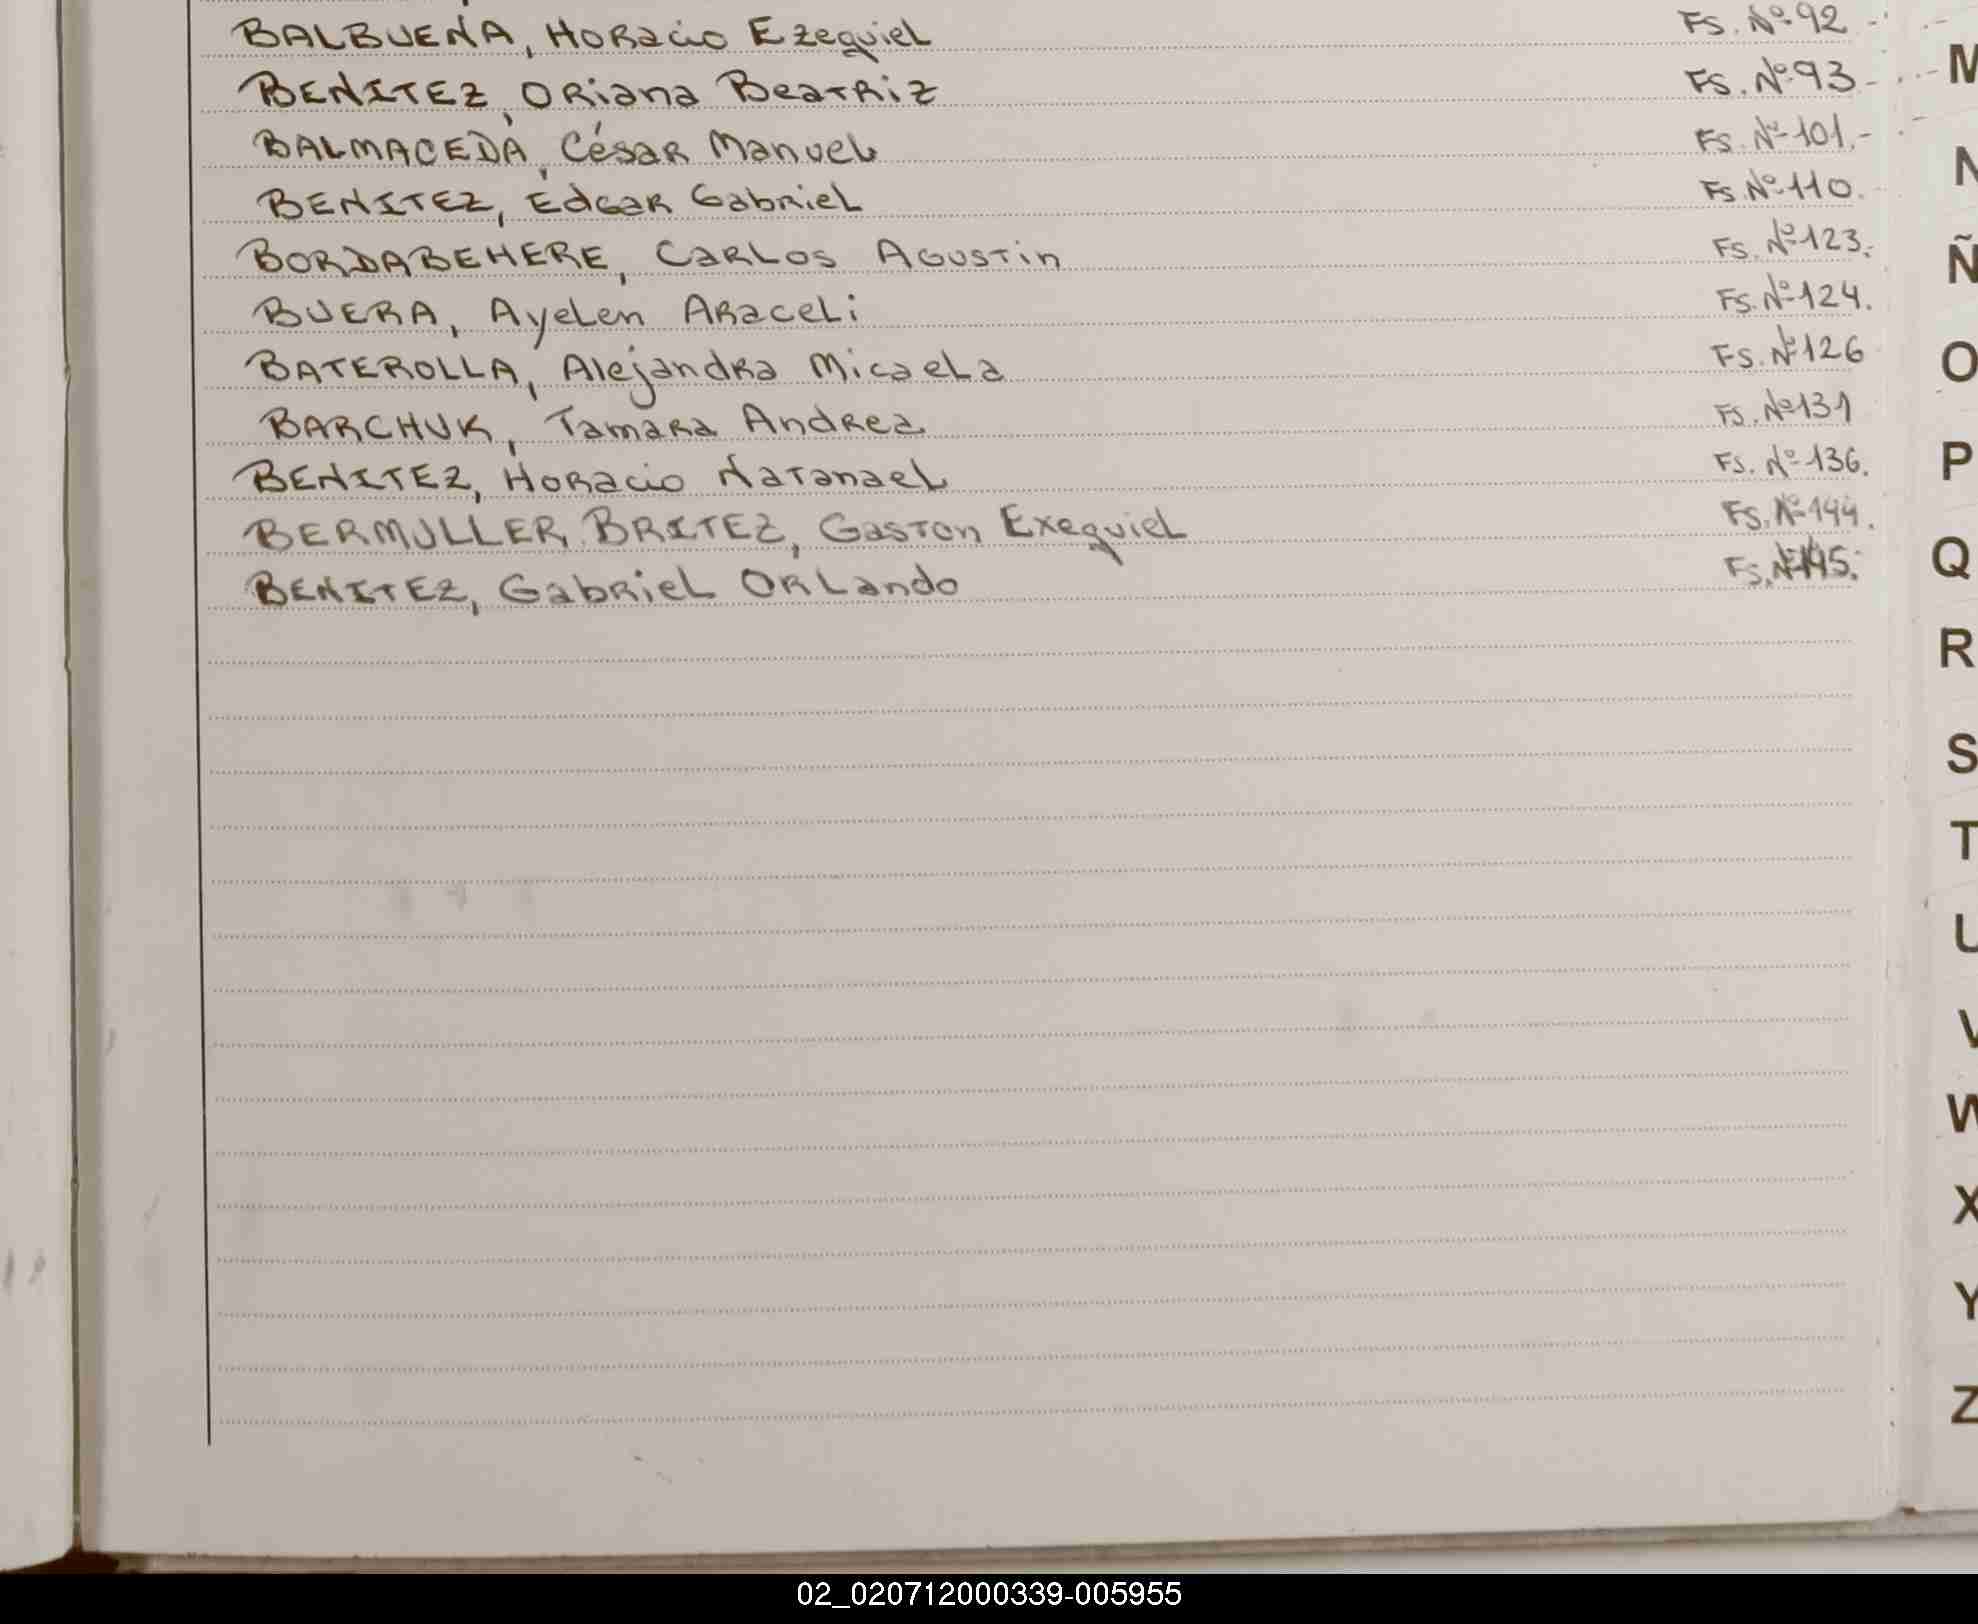 BALBUENA, Horacio Ezequiel Fs. Nº 92 -
BENITEZ, Oriana Beatriz Fs. Nº 93 -
BALMACEDA, César Manuel Fs. Nº 101.-
BENITEZ, Edgar Gabriel Fs. Nº 110.
BORDABEHERE, Carlos Agustin Fs. Nº 123.
BUERA, Ayelen Araceli Fs. Nº 124.
BATEROLLA, Alejandra Micaela Fs. Nº 126
BARCHUK, Tamara Andrea Fs. Nº 131
BENITEZ, Horacio Natanael Fs. Nº 136.
BERMULLER BRITEZ, Gaston Exequiel Fs. Nº 144.
BENITEZ, Gabriel Orlando Fs. Nº 145.
M
N
Ñ
O
P
Q
R
S
T
U
V
W
X
Y
Z
02_020712000339-005955